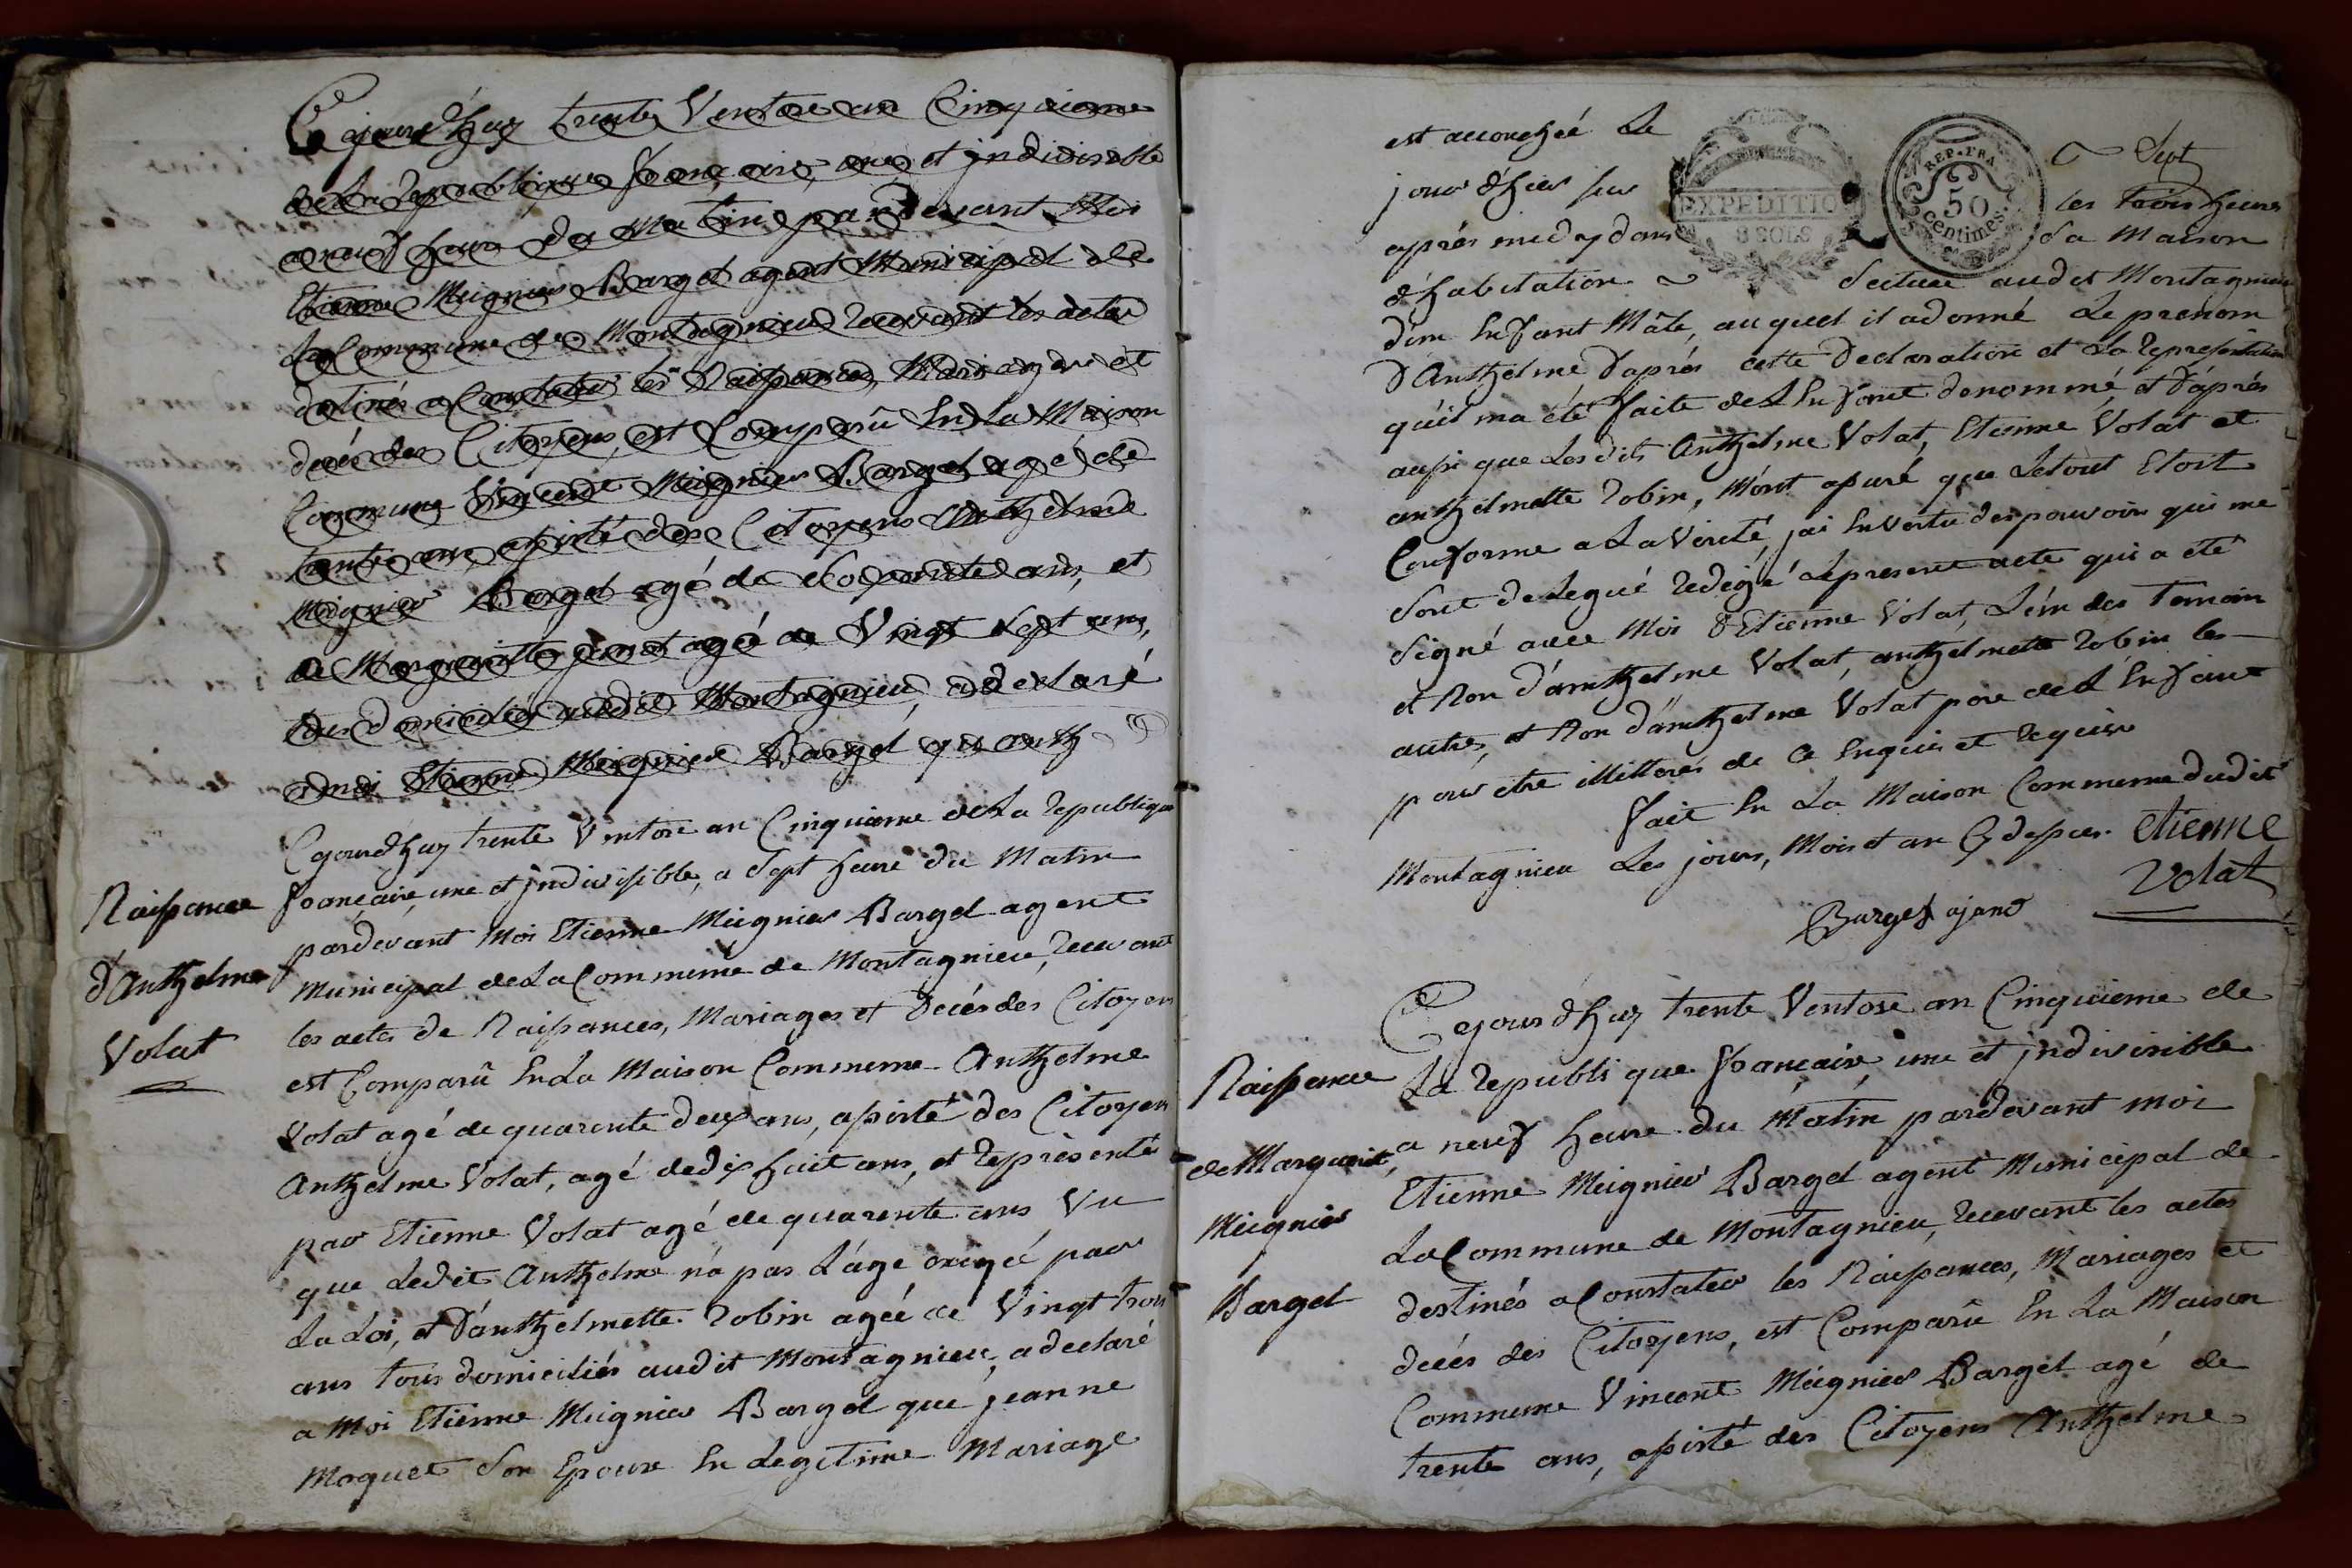 Cejourd'huy trente Ventose an Cinquieme
de La Republique francaise, une et jndivisible
a neuf heure du Matin pardevant Moi
Etienne Meignier Barget agent Municipal de
La Commune de Montagnieu Recevant les actes
destinés a Constater les Naissances, Mariages et
decés des Citoyens, est Comparû En La Maison
Commune Vincent Meignier Barget agé de
trente ans, assisté des Citoyens Anthelme
Meignier Barget agé de ans, et
de Marguitte agé de Vingt Sept ans,
tous domiciliés audit Montagnieu, a declaré
a moi Etienne Meignier Barget que anth
Naissance
d'Anthelme
Volat
Cejourd'huy trente Ventose an Cinquieme de La Republique
francaise, une et jndivisible, a Sept heure du Matin
pardevant Moi Etienne Meignier Barget agent
Municipal de La Commune de Montagnieu, Recevant
les actes de Naissances, Mariages et Decés des Citoyens
est Comparû En La Maison Commune Anthelme
Volat agé de quarente deux ans, assisté des Citoyens
Anthelme Volat, agé de dix huit ans, et Représenté
par Etienne Volat agé de quarente ans Vu
que Ledit Anthelme n'a pas L'age exigée par
La Loi, et D'anthelmette Robin agée de Vingt trois
ans tous domiciliés audit Montagnieu, a declaré
a Moi Etienne Meignier Barget que jeanne
Moquet Son Epouse En Legitime Mariage
est accouchée Le Sept
jour d'hier sur les trois heures
après midy dans Sa Maison
d'habitation Scituée audit Montagnieu
d'un Enfant Mâle, auquel il a donné Le prénom
D'Anthelme D'après cette Declaration et La Representation
qu'il ma été faite de L'Enfant denommé, et D'après
aussi que Lesdits Anthelme Volat, Etienne Volat et
anthelmette Robin, M'ont assuré que Letout Etoit
Conforme a La Verité, jai En Vertu des pouvoirs qui me
Sont Delegué Redigé Le present acte qui a été
Signé avec Moi & Etienne Volat, L'un des Temoins
et Non d'amthelme Volat, anthelmette Robin les
autres, et Non d'amthelme Volat pere de L'Enfant
pour etre illitterés de Ce Enquis et Requis
fait En La Maison Commune dudit
Montagnieu Les jours, Mois et an Cy dessus. Etienne
Volat
Barget ajant
EXPEDITIO
8 SOLS
REP. FRA.
50
centimes.
Naissance
de Marguerit
Meignier
Barget
Cejourd'huy trente Ventose an Cinquieme de
La Republique francaise, une et jndivisible
a neuf heure du Matin pardevant moi
Etienne Meignier Barget agent Municipal de
La Commune de Montagnieu, Recevant les actes
destinés a Constater les Naissances, Mariages et
decés des Citoyens, est Comparû En La Maison
Commune Vincent Meignier Barget agé de
trente ans, assisté des Citoyens Anthelme